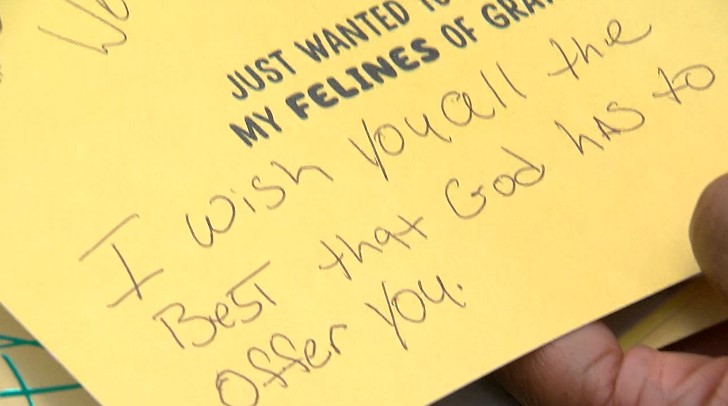 JUST WANTED
MY FELINES OF
I wish you all the
Best that God HAS to
Offer You.